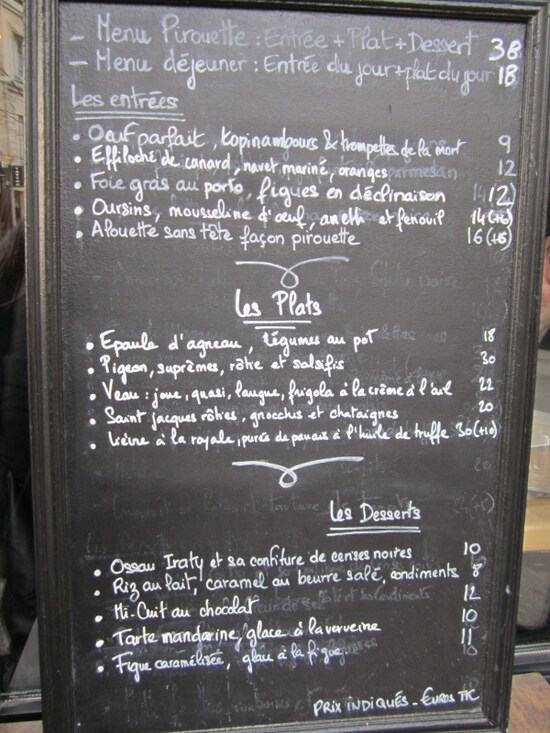 - Menu Pirouette : Entrée + Plat + Dessert 38
- Menu déjeuner : Entrée du jour + plat du jour 18
Les entrées
• Oeuf parfait, topinambours & trompettes de la mort 9
• Effiloché de canard, navet mariné, oranges 12
• Foie gras au porto, figues en déclinaison 12
• Oursins, mousseline d'œuf, aneth et fenouil 14 (+6)
• Alouette sans tête façon pirouette 16 (+8)
Les Plats
• Epaule d'agneau, légumes au pot 18
• Pigeon, suprêmes, rôtie et salsifis 30
• Veau : joue, quasi, langue, frigola à la crème à l'ail 22
• Saint jacques rôties, gnocchis et chataignes 20
• Lièvre à la royale, purée de panais à l'huile de truffe 30 (+10)
Les Desserts
• Ossau Iraty et sa confiture de cerises noires 10
• Riz au lait, caramel au beurre salé, condiments 8
• Mi-Cuit au chocolat 12
• Tarte mandarine, glace à la verveine 10
• Figue caramélisée, glace à la figue 11
PRIX INDIQUÉS - EUROS TTC